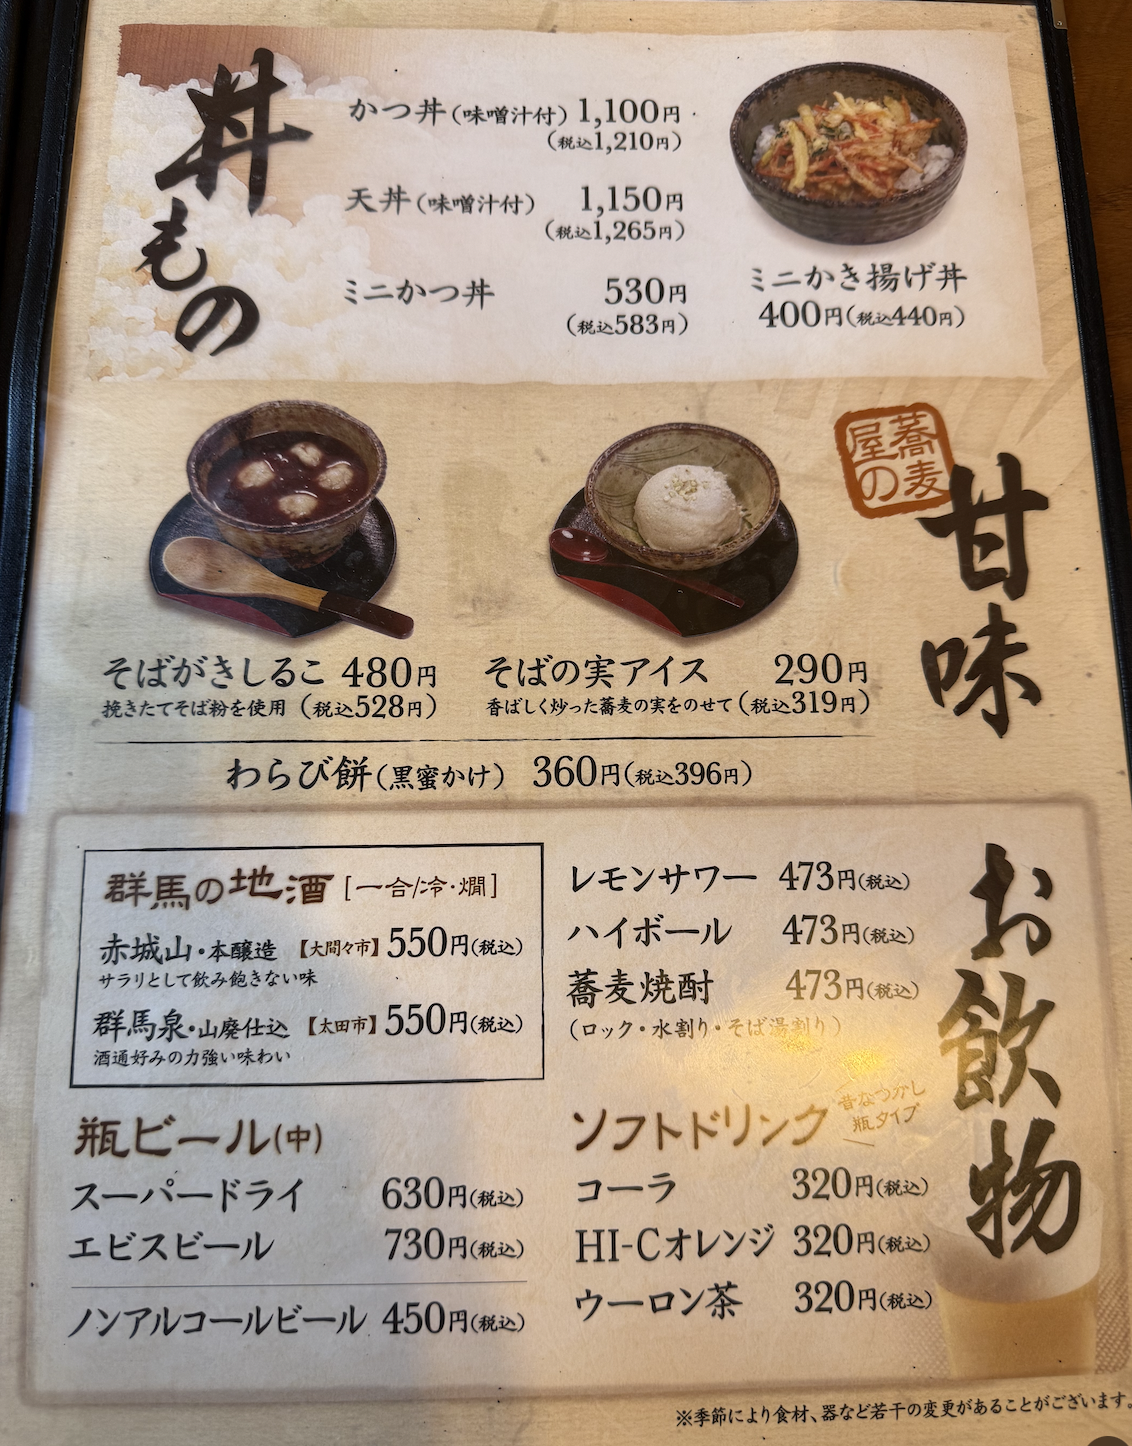 丼もの
かつ丼(味噌汁付) 1,100円
(税込1,210円)
天丼(味噌汁付) 1,150円
(税込1,265円)
ミニかつ丼 530円
(税込583円)
ミニかき揚げ丼
400円(税込440円)
蕎麦屋の
甘味
そばがきしるこ 480円
挽きたてそば粉を使用 (税込528円)
そばの実アイス 290円
香ばしく炒った蕎麦の実をのせて(税込319円)
わらび餅(黒蜜かけ) 360円(税込396円)
お飲物
群馬の地酒[一合/冷・燗]
赤城山・本醸造 【大間々市】550円(税込)
サラリとして飲み飽きない味
群馬泉・山廃仕込 【太田市】550円(税込)
酒通好みの力強い味わい
瓶ビール(中)
スーパードライ 630円(税込)
エビスビール 730円(税込)
ノンアルコールビール 450円(税込)
レモンサワー 473円(税込)
ハイボール 473円(税込)
蕎麦焼酎 473円(税込)
(ロック・水割り・そば湯割り)
ソフトドリンク
昔なつかし
瓶タイプ
コーラ 320円(税込)
HI-Cオレンジ 320円(税込)
ウーロン茶 320円(税込)
※季節により食材、器など若干の変更があることがございます。